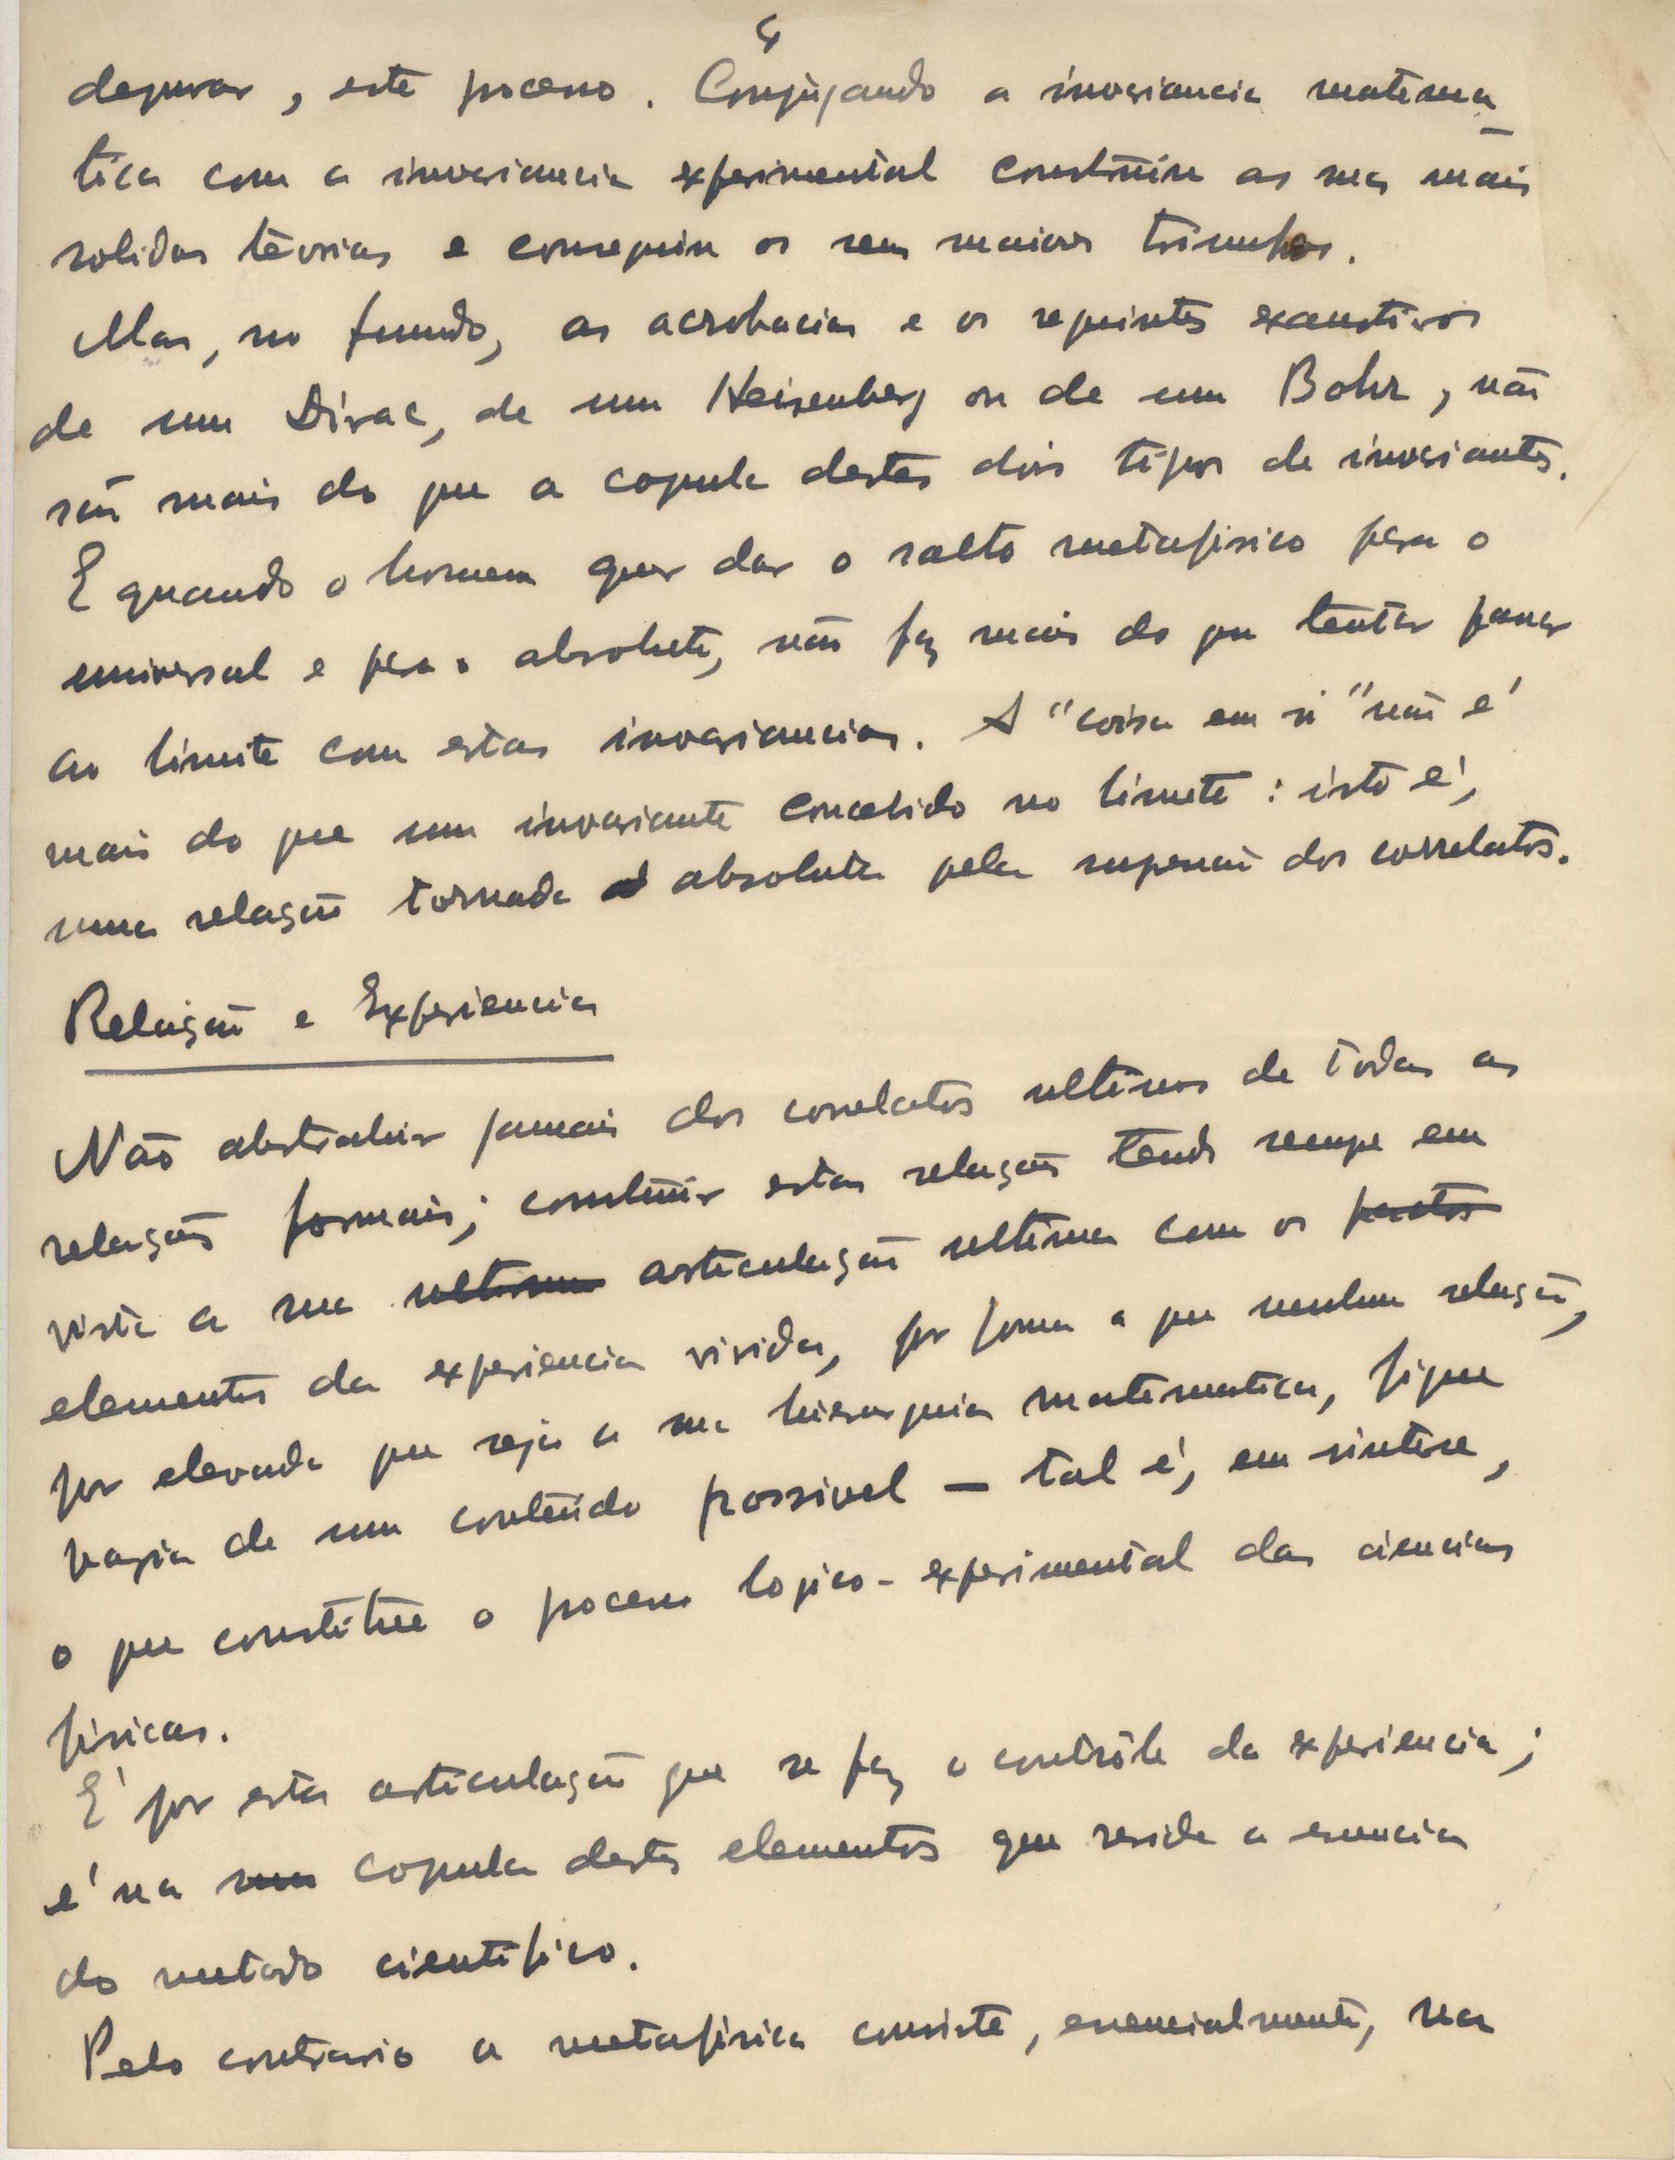 4
depurar, este processo. Conjugando a invariancia matema_
tica com a invariancia experimental construiu as suas mais
solidas teorias e conseguiu os seus maiores triunfos.
Mas, no fundo, as acrobacias e os requintes exaustivos
de um Dirac, de um Heisenberg ou de um Bohr, não
são mais do que a copula destes dois tipos de invariantes.
E quando o homem quer dar o salto metafisico para o
universal e para o absoluto, não faz mais do que tentar passar
ao limite com estas invariancias. A "coisa em si" não é
mais do que um invariante concebido no limite: isto é,
uma relação tornada absoluta pela supressão dos correlatos.
Relação e Experiencia
Não abstrahir jamais dos correlatos ultimos de todas as
relações formais; construir estas relações tendo sempre em
vista a sua ultima articulação ultima com os factos
elementos da experiencia vivida, por forma a que nenhuma relação,
por elevada que seja a sua hierarquia matematica, fique
vazia de um conteúdo possivel — tal é, em sintese,
o que constitue o processo logico-experimental das ciencias
fisicas.
É por esta articulação que se faz o contrôle da experiencia;
é na sua copula destes elementos que reside a essencia
do metodo cientifico.
Pelo contrario a metafisica consiste, essencialmente, na